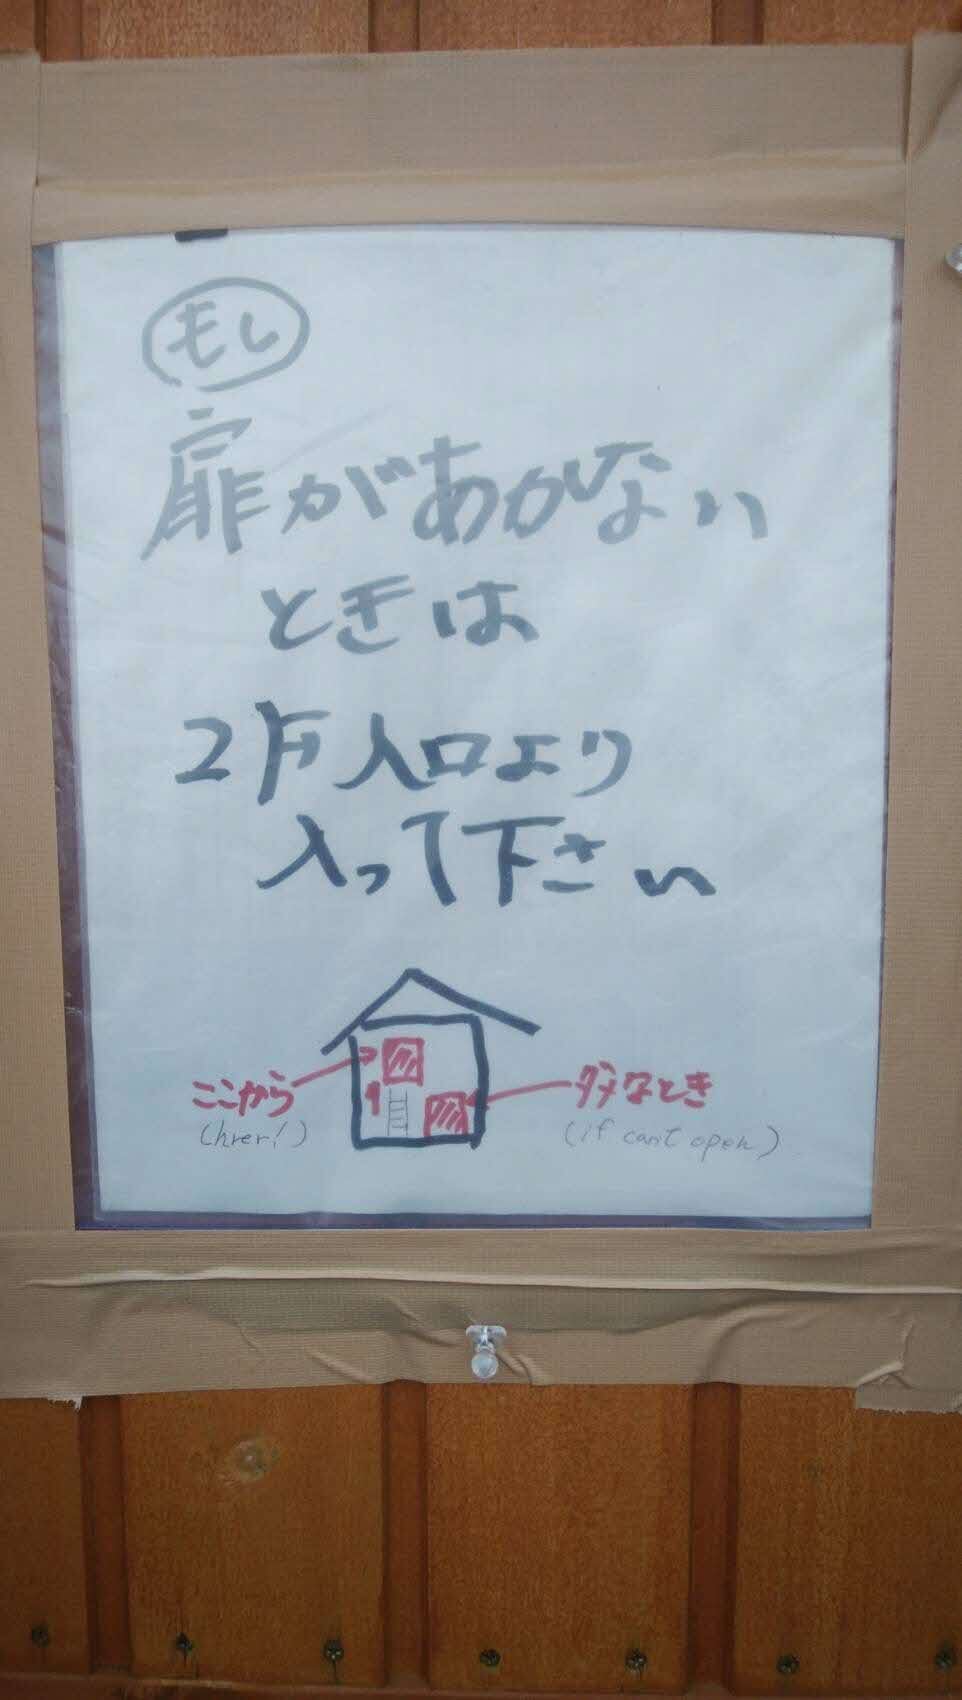 もし
扉があかない
ときは
2戸入口より
入って下さい
ここから
(hrer!)
ダメなとき
(if can't open)